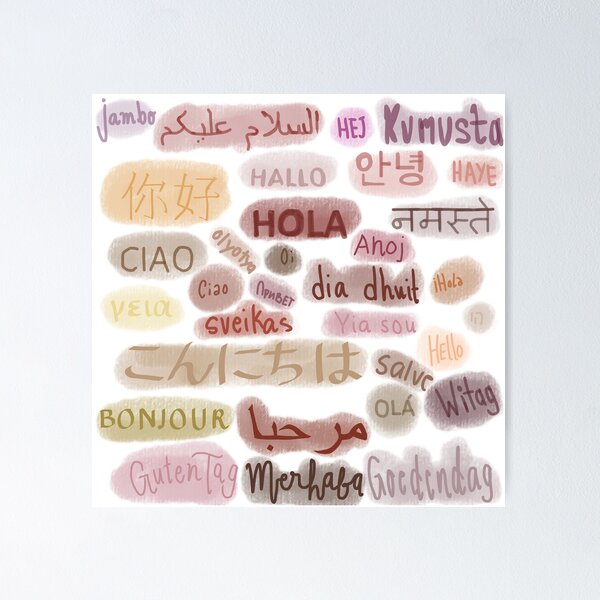 jambo
السلام عليكم
HEJ
Kumusta
你好
HALLO
안녕
HAYE
HOLA
नमस्ते
CIAO
olyotya
Oi
Ahoj
Ciao
Привет
dia dhuit
¡Hola
γεια
sveikas
Yia sou
Hello
こんにちは
Salve
OLÁ
Witag
BONJOUR
مرحبا
Guten Tag
Merhaba
Goedendag